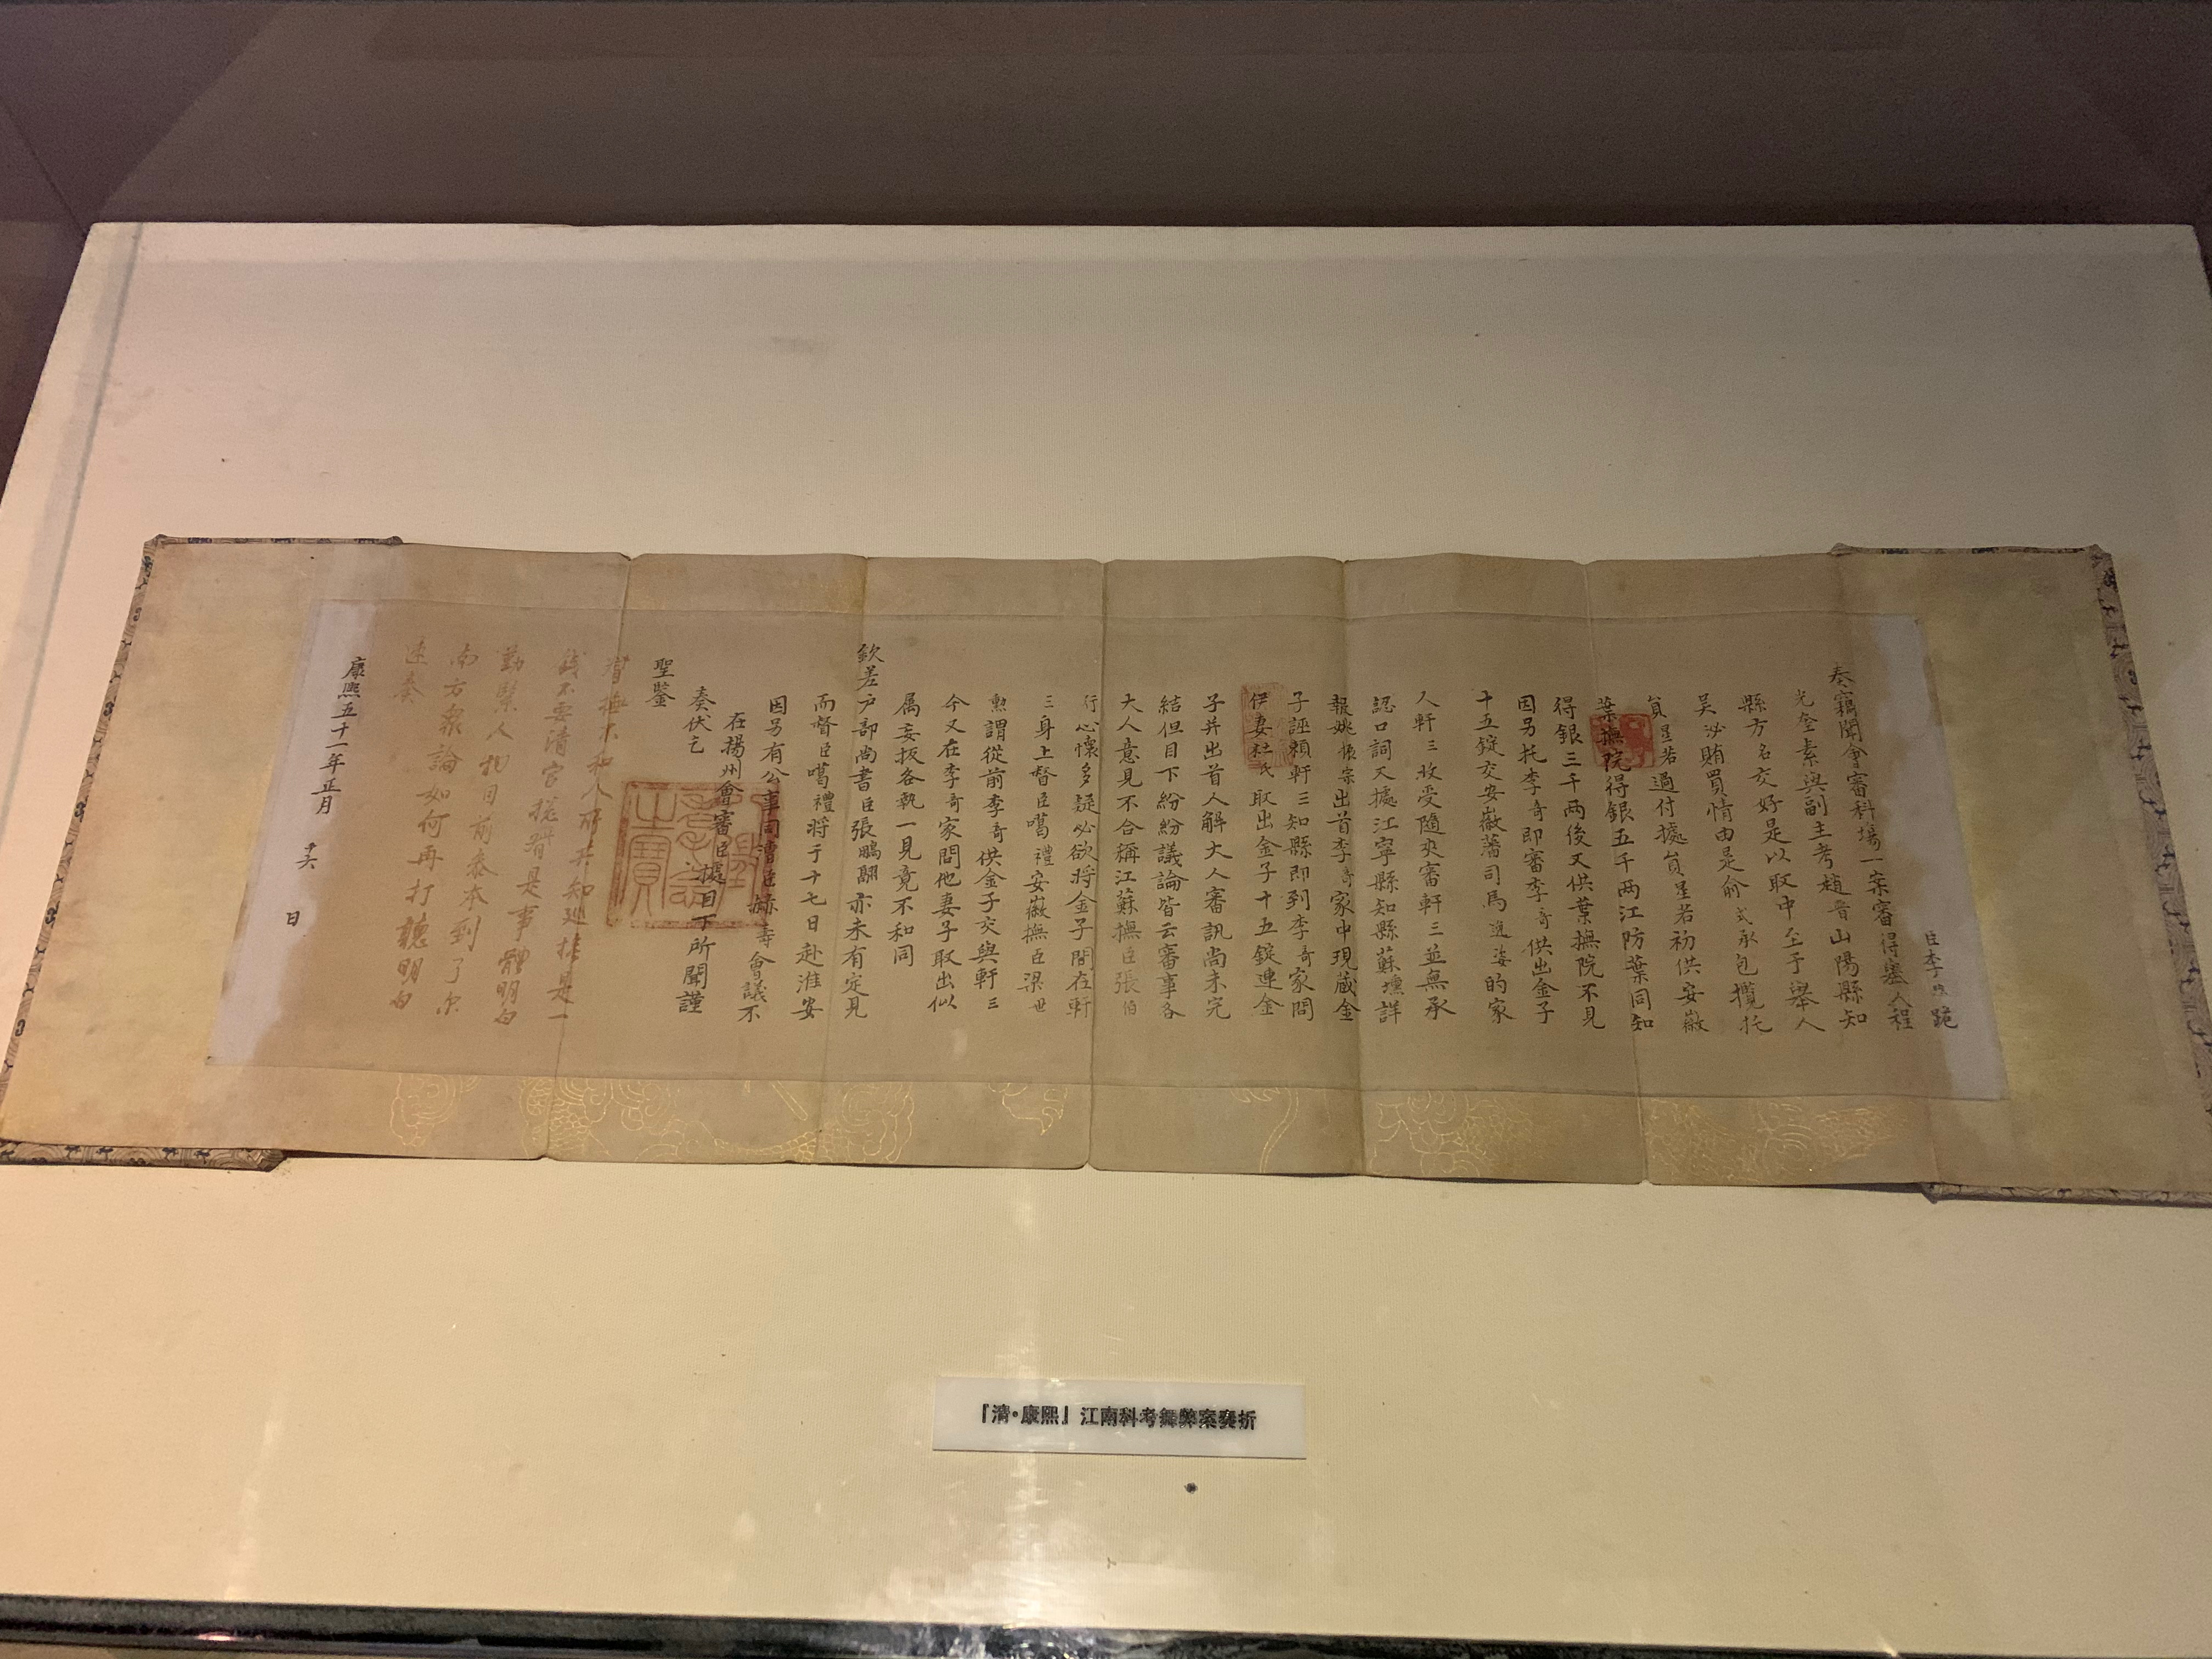 臣李煦跪
奏竊聞會審科場一案審得舉人程
光奎素與副主考趙晋山陽縣知
縣方名交好是以取中至于舉人
吳泌賄買情由是俞式承包攬托
員星若過付據員星若初供安徽
葉撫院得銀五千兩江防葉同知
得銀三千兩後又供葉撫院不見
因另托李奇即審李奇供出金子
十五錠交安徽藩司馬逸姿的家
人軒三收受隨夾審軒三並無承
認口詞又據江寧縣知縣蘇壎詳
報姚振宗出首李奇家中現藏金
子誣賴軒三知縣即到李奇家問
伊妻杜氏取出金子十五錠連金
子并出首人解大人審訊尚未完
結但目下紛紛議論皆云審事各
大人意見不合稱江蘇撫臣張伯
行心懷多疑必欲將金子問在軒
三身上督臣噶禮安徽撫臣梁世
勳謂從前李奇供金子交與軒三
今又在李奇家問他妻子取出似
属妄扳各執一見竟不和同
欽差户部尚書臣張鵬翮亦未有定見
而督臣噶禮将于十七日赴淮安
因另有公事同漕臣赫壽會議不
在揚州會審臣據目下所聞謹
奏伏乞
聖鑒
督撫不和人所共知巡撫是一
錢不要清官總督是事體明白
勤緊人物目前叅本到了尔
南方衆論如何再打聽明白
速奏
康熙五十一年正月 十六 日
『清·康熙』江南科考舞弊案奏折